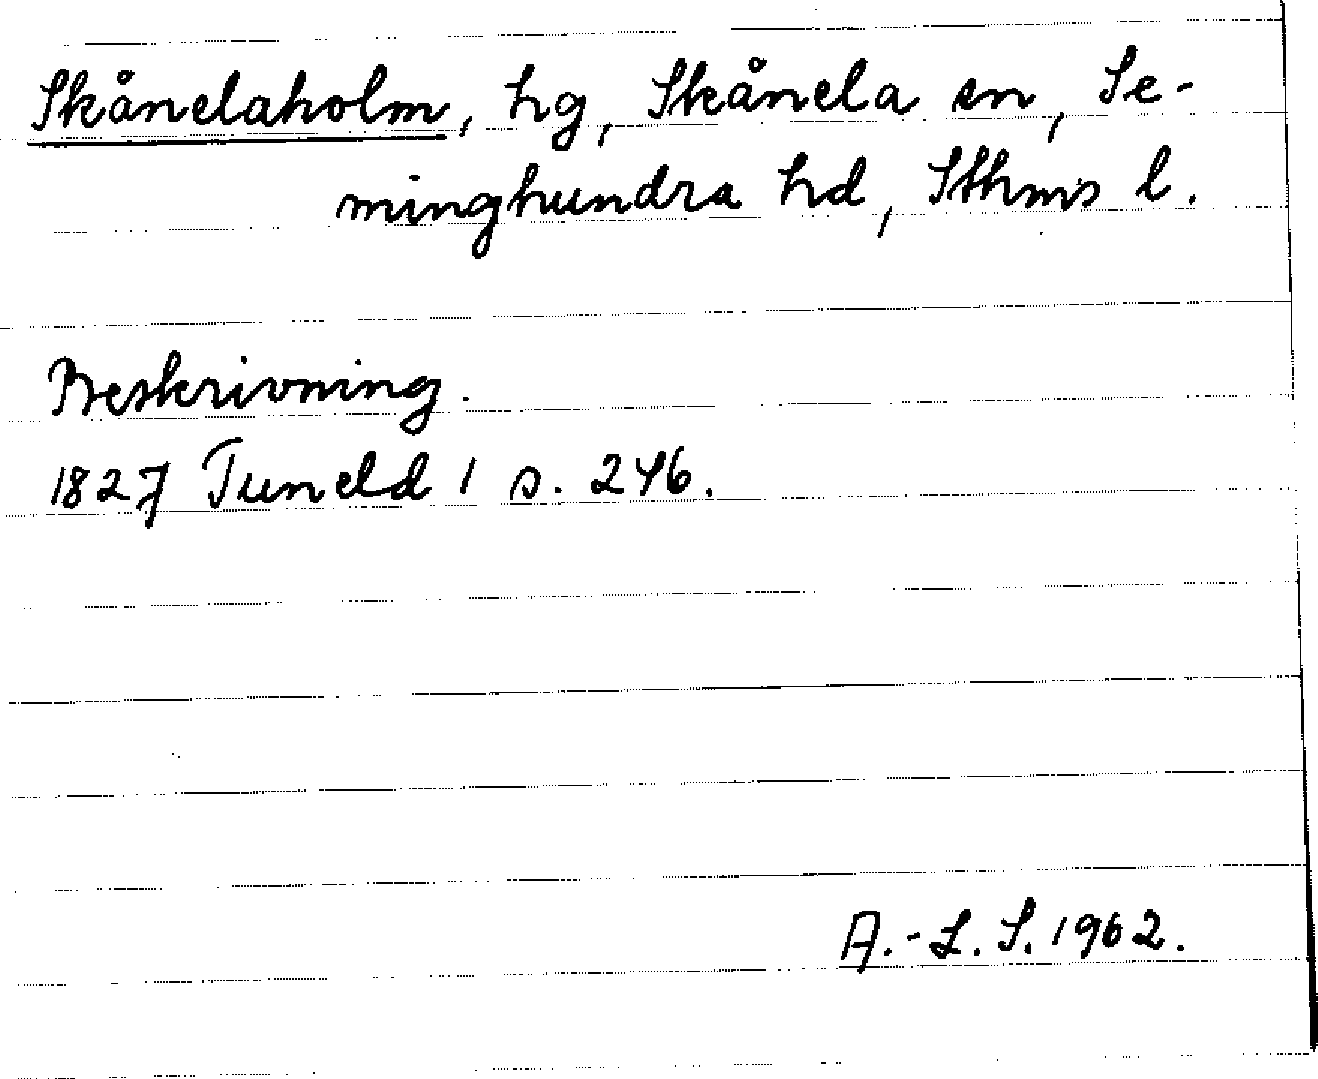 Skånelaholm, hg, Skånela sn, Se-
minghundra hd, Sthms l.
Beskrivning.
1827 Tuneld 1 s. 246.
A.-L. S. 1962.